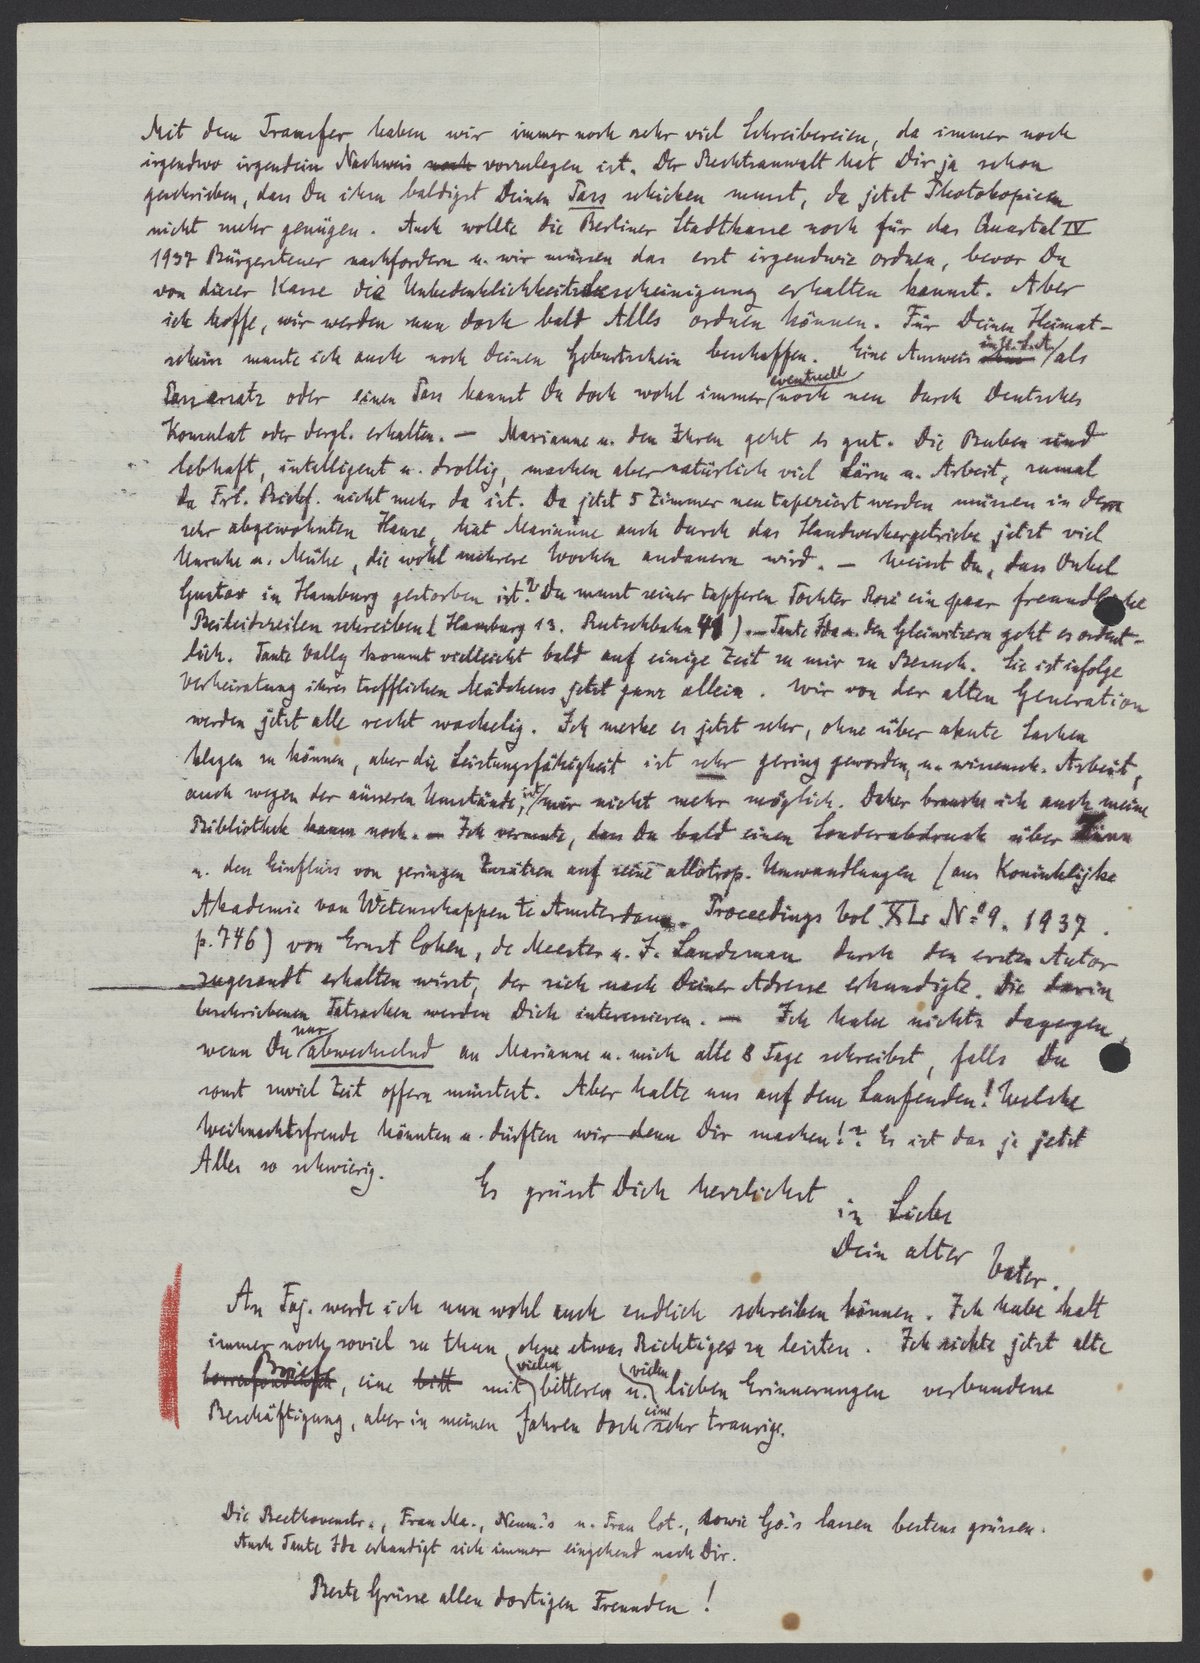 Mit dem Transfer haben wir immer noch sehr viel Schreibereien, da immer noch
irgendwo irgendein Nachweis noch vorzulegen ist. Der Rechtsanwalt hat Dir ja schon
geschrieben, dass Du ihm baldigst Deinen Pass schicken musst, da jetzt Photokopieen
nicht mehr genügen. Auch wollte die Berliner Stadtkasse noch für das Quartal IV
1937 Bürgersteuer nachfordern u. wir müssen das erst irgendwie ordnen, bevor Du
von dieser Kasse die Unbedenklichkeitsbescheinigung erhalten kannst. Aber
ich hoffe, wir werden nun doch bald Alles ordnen können. Für Deinen Heimat-
schein musste ich auch noch Deinen Geburtsschein beschaffen. Eine Ausweis als
Passersatz oder einen Pass kannst Du doch wohl immer eventuell noch neu durch Deutsches
Konsulat oder dergl. erhalten. — Marianne u. den Ihren geht es gut. Die Buben sind
lebhaft, intelligent u. drollig, machen aber natürlich viel Lärm u. Arbeit, zumal
da Frl. nicht mehr da ist. Da jetzt 5 Zimmer neu tapeziert werden müssen in dem
sehr abgewohnten Hause, hat Marianne auch durch das Handwerkergetriebe jetzt viel
Unruhe u. Mühe, die wohl mehrere Wochen andauern wird. — Weisst Du, dass Onkel
Gustav in Hamburg gestorben ist? Du musst seiner tapferen Tochter Rosi ein paar freundliche
Beileidszeilen schreiben (Hamburg 13. Rutschbahn 41). — Tante Ida u. den Gleiwitzern geht es ordent-
lich. Tante Vally kommt vielleicht bald auf einige Zeit zu mir zu Besuch. Sie ist infolge
Verheiratung ihres trefflichen Mädchens jetzt ganz allein. Wir von der alten Generation
werden jetzt alle recht wackelig. Ich merke es jetzt sehr, ohne über akute Sachen
klagen zu können, aber die Leistungsfähigkeit ist sehr gering geworden, u. wissensch. Arbeit,
auch wegen der äusseren Umstände, ist mir nicht mehr möglich. Daher brauche ich auch meine
Bibliothek kaum noch. — Ich vermute, dass Du bald einen Sonderabdruck über Zinn
u. den Einfluss von geringen Zusätzen auf seine allotrop. Umwandlungen (aus Koninklijke
Akademie van Wetenschappen te Amsterdam. Proceedings Vol. XL. No 9. 1937.
p. 746) von Ernst Cohen, de Meester u. J. Landsman durch den ersten Autor
zugesandt erhalten wirst, der sich nach Deiner Adresse erkundigte. Die darin
beschriebenen Tatsachen werden Dich interessieren. — Ich habe nichts dagegen,
wenn Du nur abwechselnd an Marianne u. mich alle 8 Tage schreibst, falls Du
sonst zuviel Zeit opfern müsstest. Aber halte uns auf dem Laufenden! Welche
Weihnachtsfreude könnten u. dürften wir denn Dir machen!? Es ist das ja jetzt
Alles so schwierig.
Es grüsst Dich herzlichst
in Liebe
Dein alter Vater.
An Faj. werde ich nun wohl auch endlich schreiben können. Ich habe halt
immer noch soviel zu thun, ohne etwas Richtiges zu leisten. Ich sichte jetzt alte
Briefe, eine bitt mit vielen bitteren u. vielen lieben Erinnerungen verbundene
Beschäftigung, aber in meinen Jahren doch eine sehr traurige.
Die Beethovenstr., Frau Ma., Neum.'s u. Frau Cot., sowie Go.'s lassen bestens grüssen.
Auch Tante Ida erkundigt sich immer eingehend nach Dir.
Beste Grüsse allen dortigen Freunden!